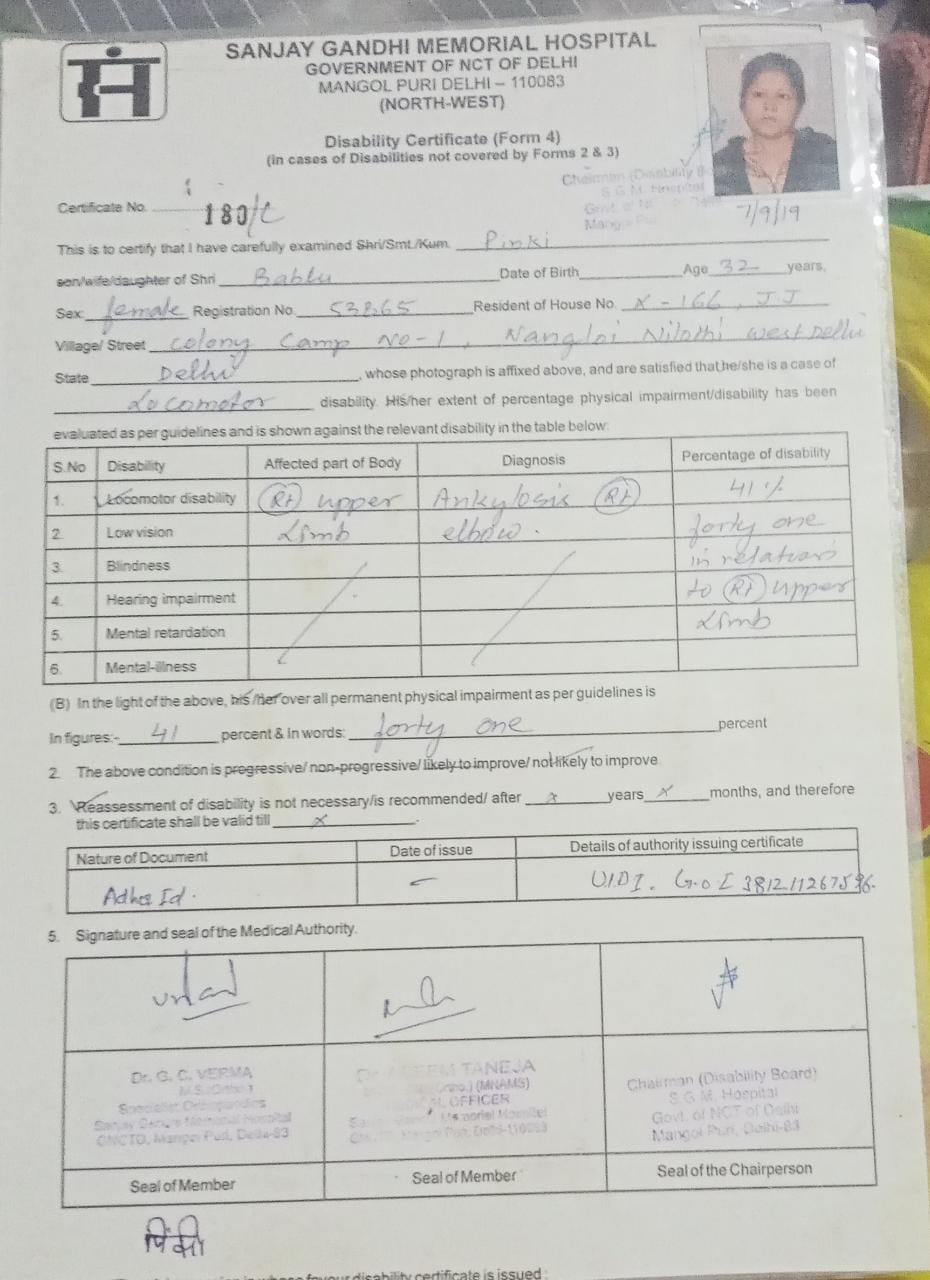 SANJAY GANDHI MEMORIAL HOSPITAL
GOVERNMENT OF NCT OF DELHI
MANGOL PURI DELHI – 110083
(NORTH-WEST)
Disability Certificate (Form 4)
(in cases of Disabilities not covered by Forms 2 & 3)
Chairman (Disability
S.G.M. Hospital
7/9/19
Certificate No. 180/C
This is to certify that I have carefully examined Shri/Smt./Kum. Pinki
son/wife/daughter of Shri Bablu Date of Birth Age 32 years,
Sex: female Registration No. 53865 Resident of House No. X-166, JJ
Village/ Street colony Camp No-1, Nangloi Nilothi west Delhi
State Delhi, whose photograph is affixed above, and are satisfied that he/she is a case of
Locomotor disability. His/her extent of percentage physical impairment/disability has been
evaluated as per guidelines and is shown against the relevant disability in the table below:
S.No Disability Affected part of Body Diagnosis Percentage of disability
1. Locomotor disability Rt upper Ankylosis Rt 41%
2. Low vision Limb elbow. forty one
3. Blindness in relation
4. Hearing impairment to Rt upper
5. Mental retardation Limb
6. Mental-illness
(B) In the light of the above, his/her over all permanent physical impairment as per guidelines is
In figures:- 41 percent & In words: forty one percent
2. The above condition is progressive/ non-progressive/ likely to improve/ not likely to improve
3. Reassessment of disability is not necessary/is recommended/ after x years x months, and therefore
this certificate shall be valid till x.
Nature of Document Date of issue Details of authority issuing certificate
Adhar Id. – U.I.D.I. G.O.I
5. Signature and seal of the Medical Authority.
Dr. G. C. VERMA
M.S. (Ortho.)
Specialist Orthopaedics
Sanjay Gandhi Memorial Hospital
GNCTD, Mangol Puri, Delhi-83
TANEJA
(MNAMS)
OFFICER
Memorial Hospital
Mangol Puri, Delhi-110083
Chairman (Disability Board)
S.G.M. Hospital
Govt. of NCT of Delhi
Mangol Puri, Delhi-83
Seal of Member Seal of Member Seal of the Chairperson
favour disability certificate is issued :